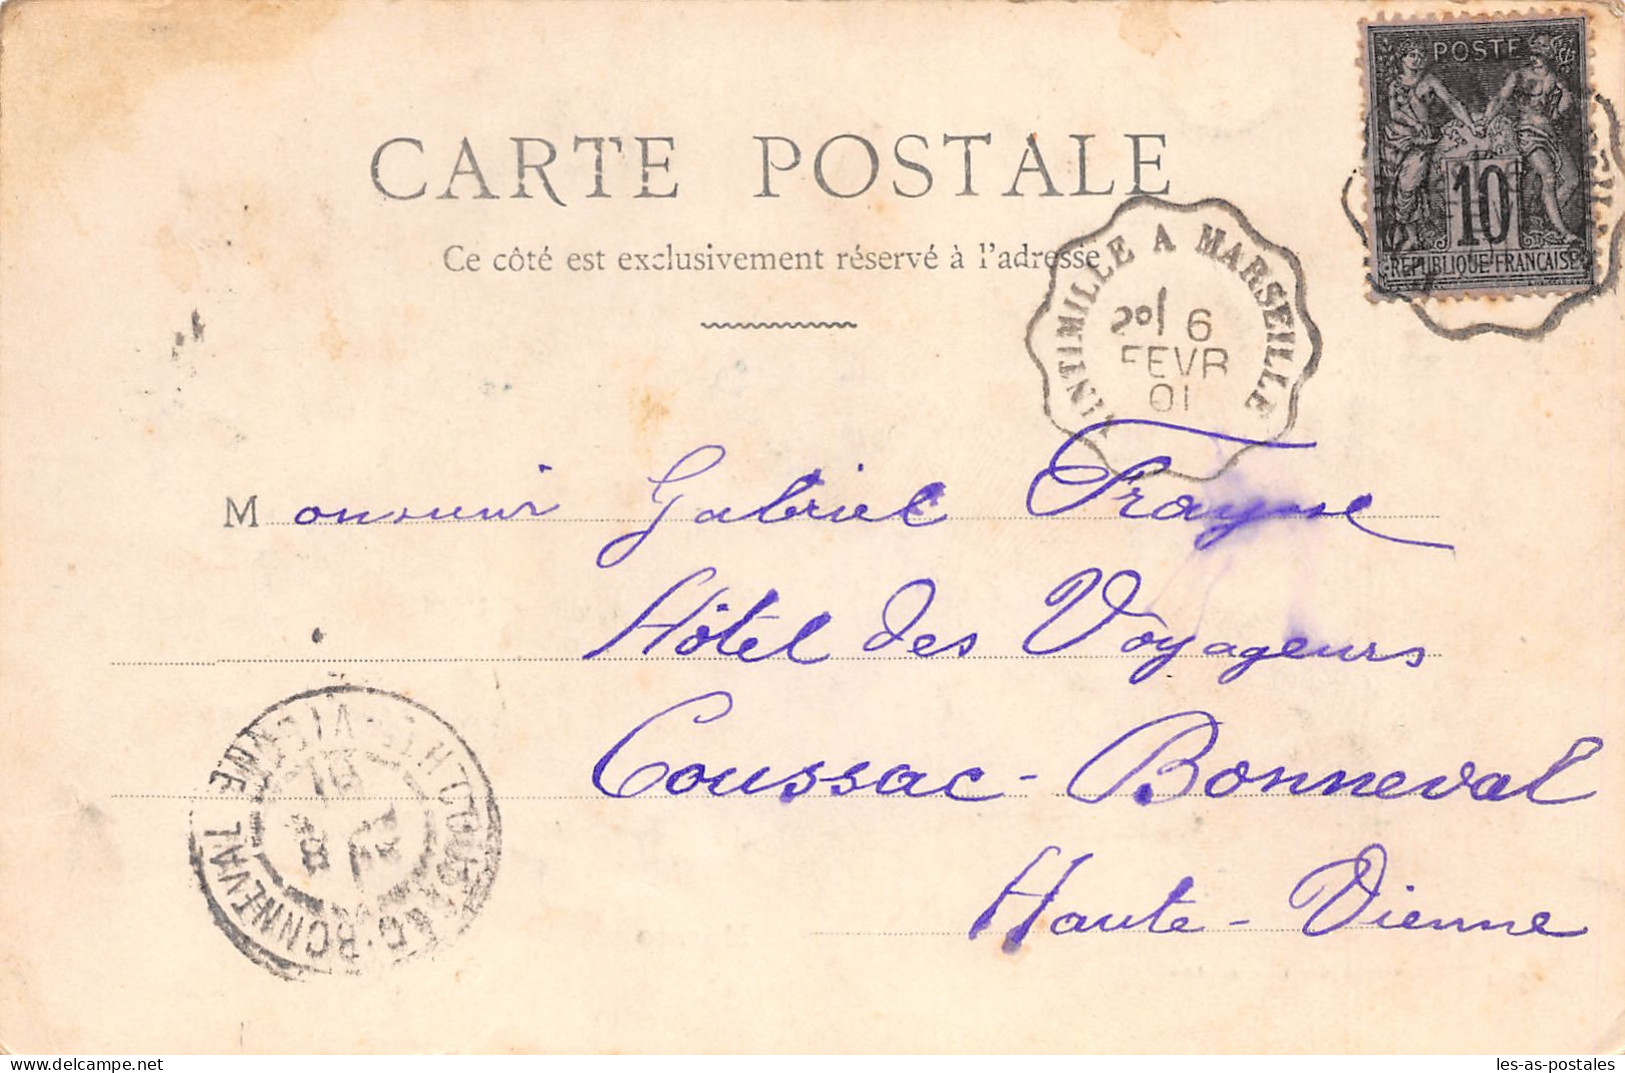 POSTE
10
REPUBLIQUE FRANÇAISE
CARTE POSTALE
Ce côté est exclusivement réservé à l'adresse
VINTIMILLE A MARSEILLE
6
FEVR
01
Monsieur Gabriel Fraysse
Hôtel des Voyageurs
Coussac-Bonneval
Haute-Vienne
COUSSAC-BONNEVAL HTE-VIENNE
8
01
les-as-postales